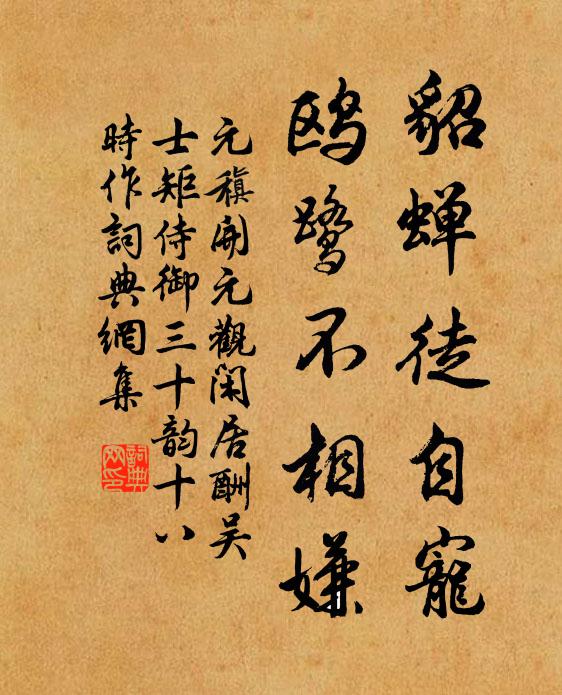 貂蝉徒自寵
鸥鹭不相嫌
元稹開元觀閑居酬吴
士矩侍御三十韵十八
時作詞典網集
詞典网印